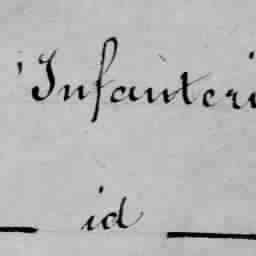 'Infanteri
id